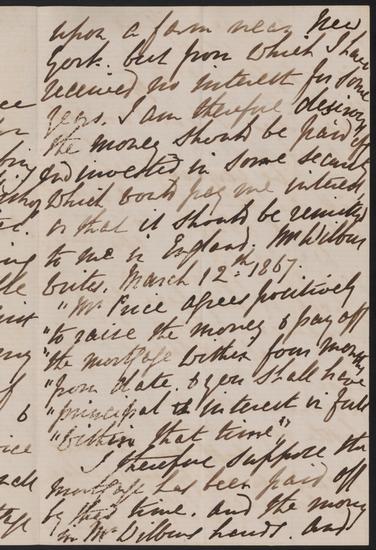 upon a farm near New
York. but from which I have
received no interest for some
years. I am therefore desirous
the money should be paid off
and invested in some security
which would pay me interest
or that it should be remitted
to me in England. Mr Wilbur
writes. March 12th 1867.
"Mr Price agrees positively
"to raise the money & pay off
"the mortgage within four months
"from date. & you shall have
"principal & interest in full
"within that time"
I therefore suppose the
mortgage has been paid off
by this time. and the money
in Mr Wilburs hands. and